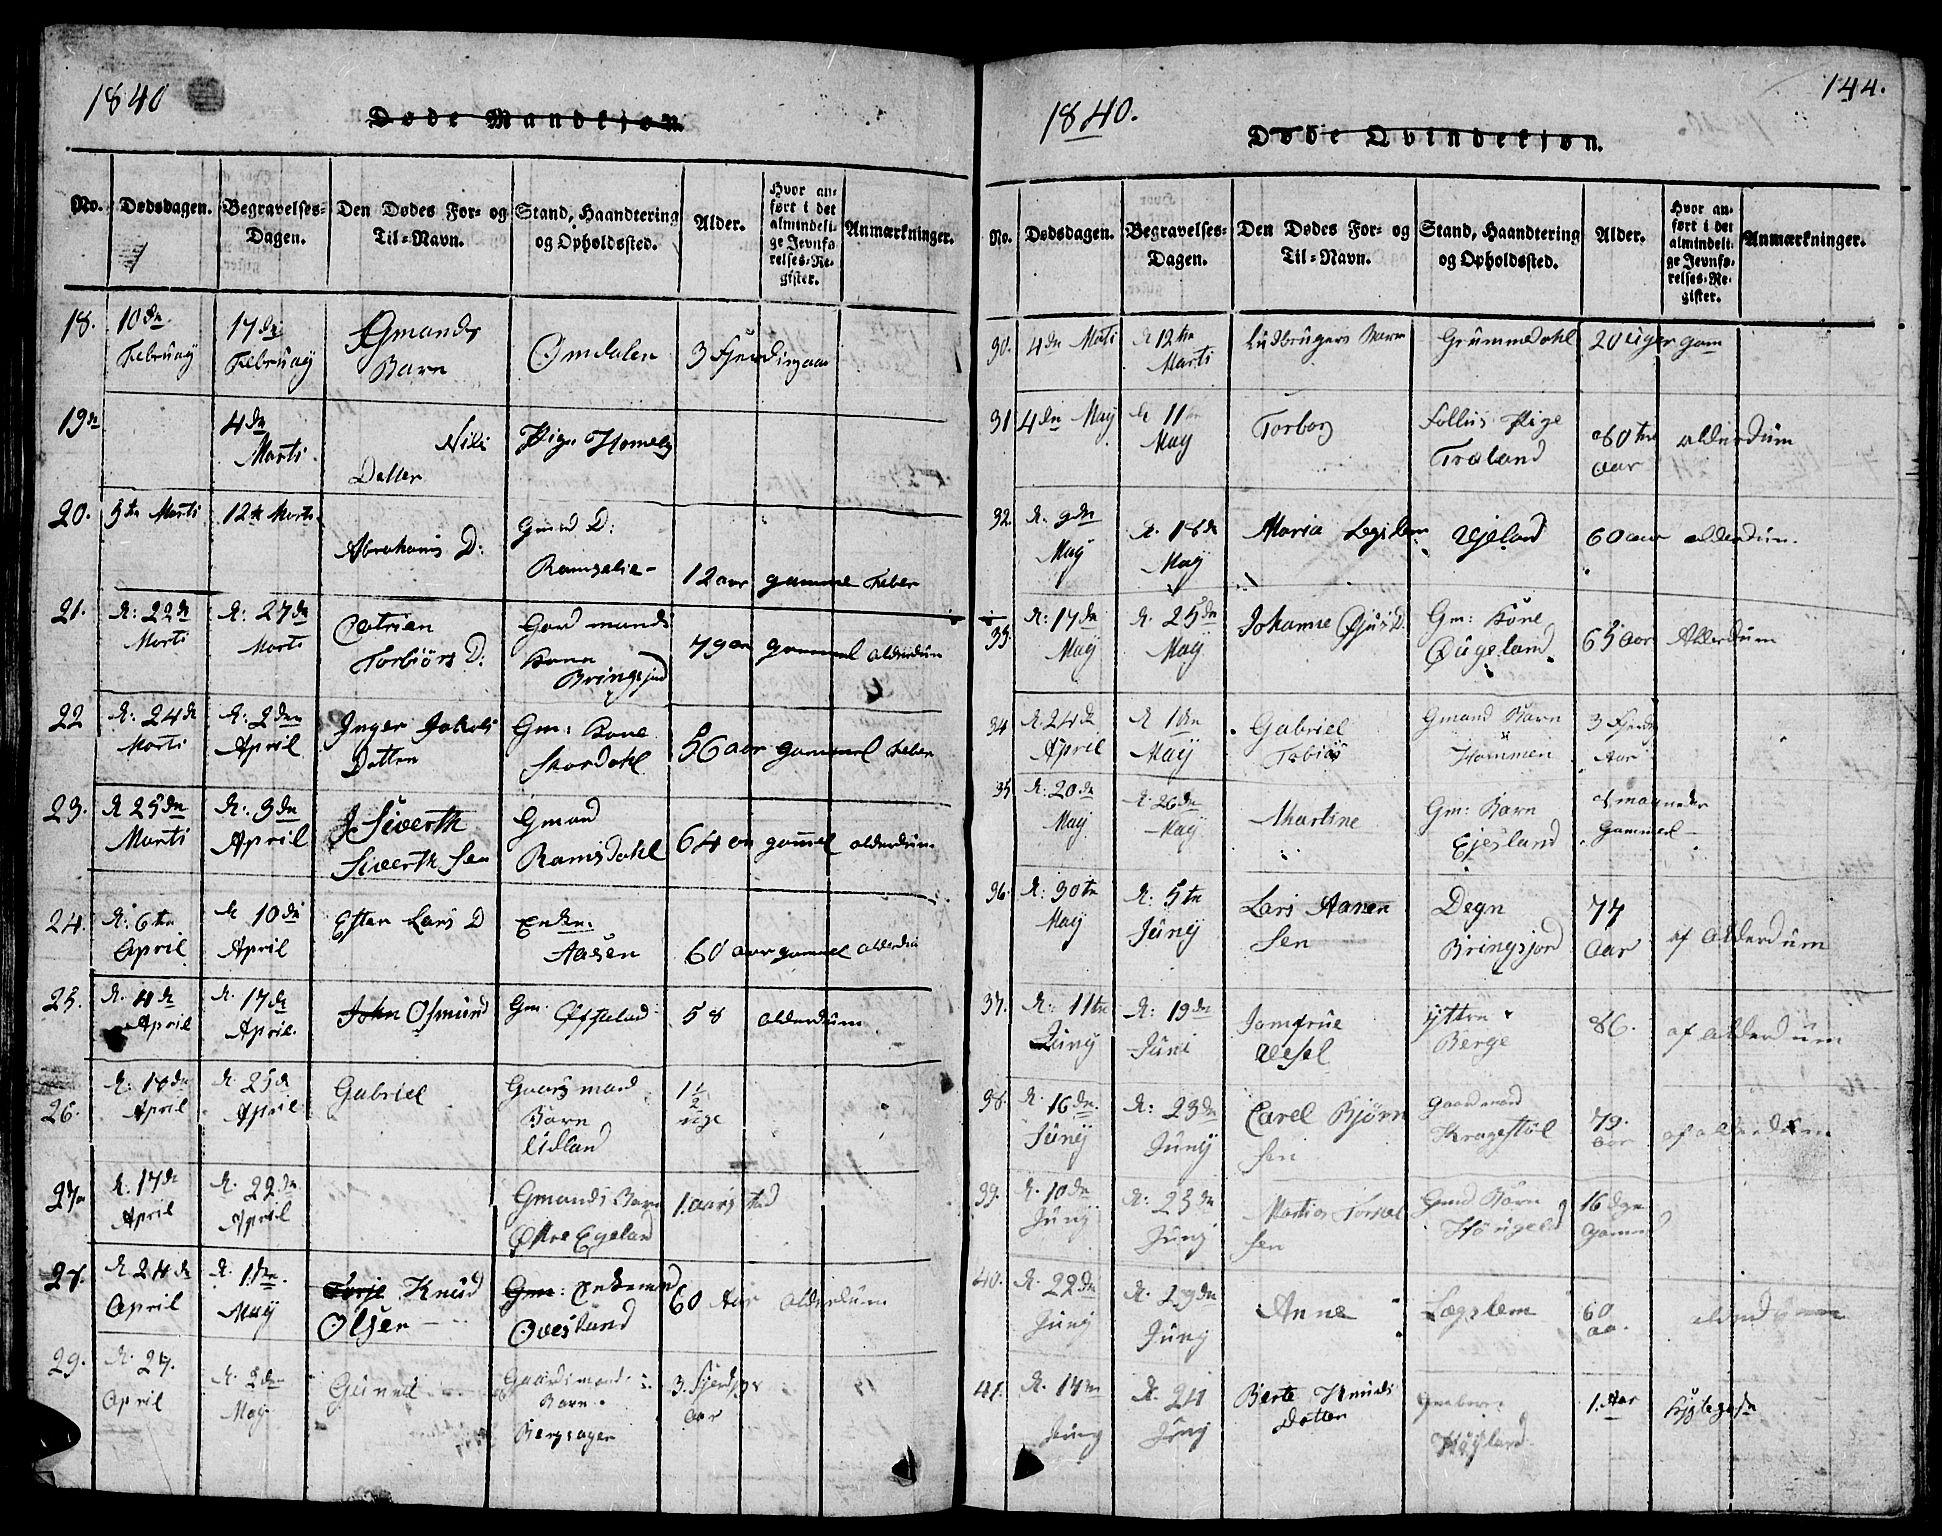 1840
Døde Mandkjøn.
No.
Dødsdagen.
Begravelses-
Dagen.
Den Dødes For- og
Til-Navn.
Stand, Haandtering
og Opholdssted.
Alder.
Hvor an-
ført i det
almindeli-
ge Jevnfø-
relses-Re-
gister.
Anmærkninger.
18.
10de
17de
Gmands
Barn
Omdalen
3 Fjerdingaar
19de
4de
Marti
Nils
Datter
Pige
20.
5te Marti
12te Marti
Abrahams D:
Gmnd D:
12 aar gamme Feber
21.
d: 22de
Marti
d: 27de
Marti
Catrien
Torbiørs D:
Gard mands
Kone
Bringsjord
79 gammel alderdum
22
d: 24de
Marti
d: 2den
April
Inger Jakobs
Datter
Gm: Kone
Skordahl
56 aar gammel Feber
23.
d 25de
Marti
d: 3de
April
Siverth
Siverth Sen
Gmand
Ramsdahl
64 gamel alderdum
24.
d: 6te
April
d 10de
April
Ester Lars D
Enke:
Aasen
60 aar gammel
25.
d. 11de
April
d. 17de
April.
John Osmund
Gm:
58 alderdum
26.
April
d. 25de
April
Gabriel
Barn
Lidland
1½
uge
27
d. 17de
April
d. 22de
April
Gmands Barn
Øktre Egeland
1. aars
d 24de
April
d. 1ste
May
Torje Knud
Olsen
Gm: Enkemand
Oveslund
60 Aar alderdum
29.
d. 27.
April
d. 2den
May
Gunnel
Gaardsmand
Barn.
Bergsagen
3. Fjerdings
aar
1840.
144.
Døde Qvindekjøn.
No.
Dødsdagen.
Begravelses-
Dagen.
Den Dødes For- og
Til-Navn.
Stand, Haandtering
og Opholdssted.
Alder.
Hvor an-
ført i det
almindeli-
ge Jevnfø-
relses-Re-
gister.
Anmærkninger.
30.
4de Marti
d 12te
Marti
Ludbrugers Barn
Grummedahl
20 uger gam
31
4de May
d 11te
May
Torborg
Pige
Traland
80te
aar
alderdum
32.
d. 9de
May
d. 18de
May
Maria
60 aar alderdum.
33.
d: 17de
May
d. 25de
May
Johanne
Gm: Kone
Øugeland
65 aar Allerdum
34
d. 24de
April
d 1den
May
Gabriel
Tobias
Gmand Barn
Hommen
3 Fjerding
Aar
35
d: 20de
May
d. 26de
May
Martine
Gm: Barn
Ejesland
maaneder
Gammel
36.
d: 30te
May
d: 5te
Juny
Lars Aanen
Sen
Degn
Bringsjord
77
aar
af alderdum
37.
d: 11te
Juny
d: 19de
Juni
Jomfrue
Wesel
yttre
Berge
86.
af alderdum
38.
d. 16de
Juny
d: 23de
Juny
Carel Bjørn
Sen
Gaardmand
Kragestøl
79.
aar
af alderdum
39.
d. 10de
Juny
d: 23de
Juny
Sen
Gmd Barn
16 dage
40.
d. 22de
Juny
d. 29de
Juny
Anne
Lægslem
60
aa.
41.
d. 17de
Juny
d. 24
Juny
Berte Knuds
Datter
Høysland
1. Aar